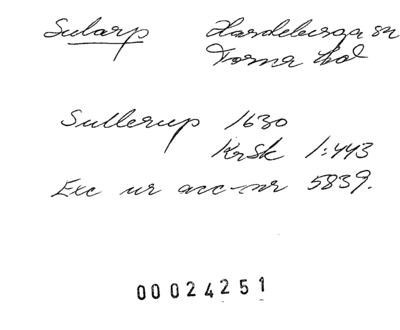 Sularp Hardeberga sn
Torna hd
Sullerup 1630
KrSk 1:443
Exc ur acc-nr 5839.
00024251